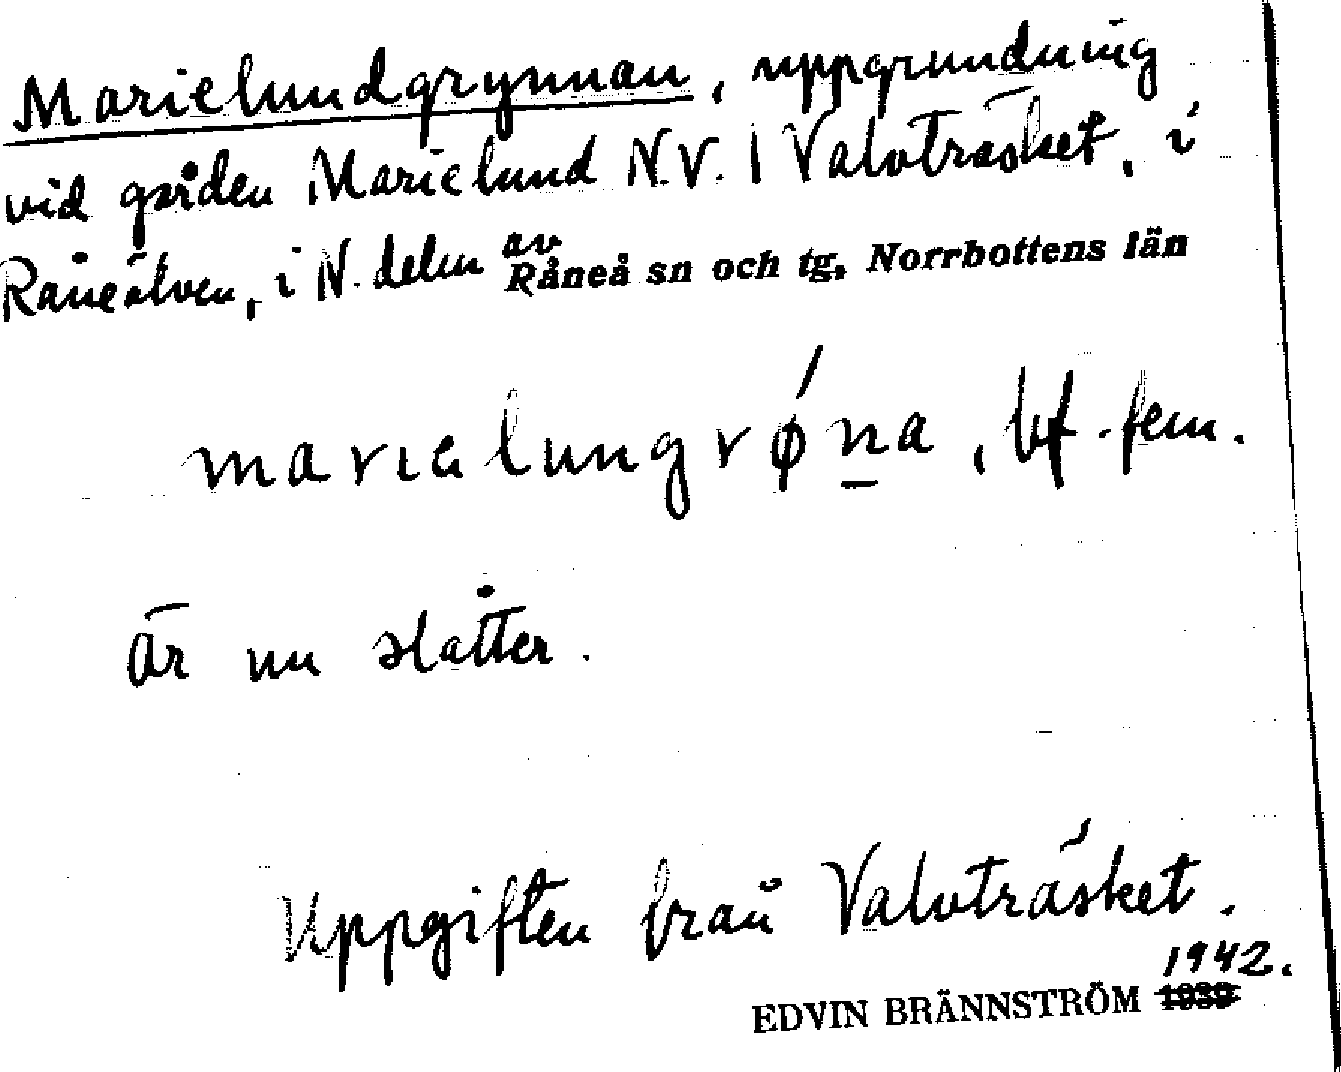 Marielundgrynnan, uppgrundning
vid gården Marielund N.V. i Valvträsket, i
Råneälven, i N. delen av Råneå sn och tg, Norrbottens län
marıɛlungrǿṉa, bf. fem.
är nu slåtter.
Uppgiften från Valvträsket.
1942.
EDVIN BRÄNNSTRÖM 1939